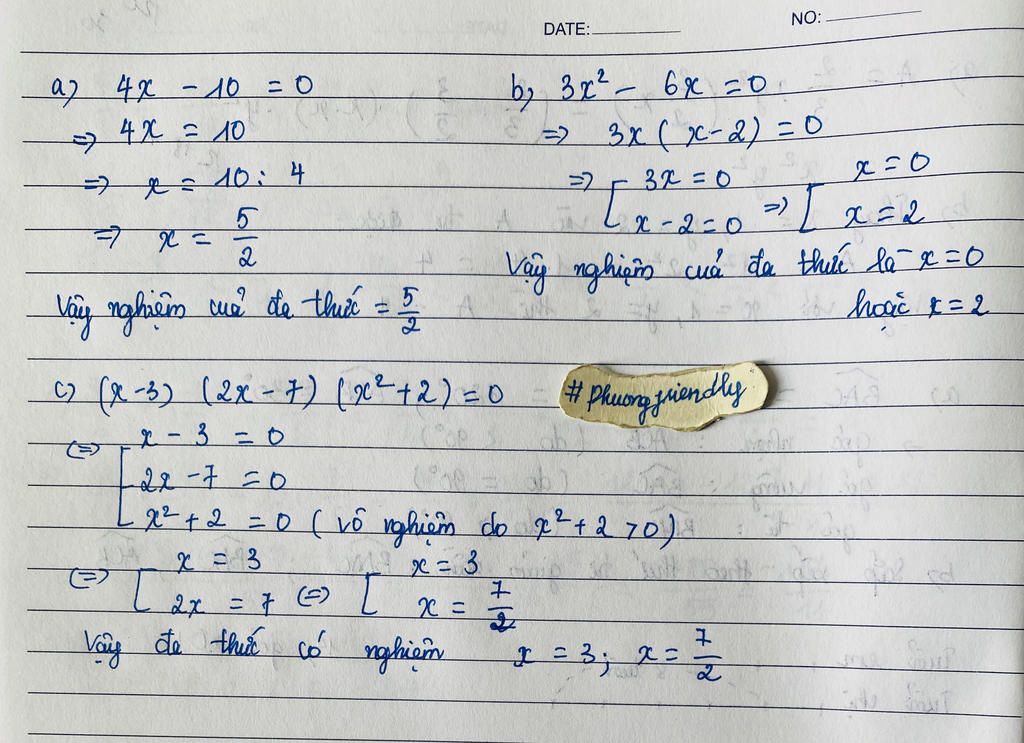 DATE: NO:
a) 4x - 10 = 0
=> 4x = 10
=> x = 10 : 4
=> x = 5/2
Vậy nghiệm cuả đa thức = 5/2
b) 3x² - 6x = 0
=> 3x ( x - 2 ) = 0
=> [ 3x = 0 => [ x = 0
x - 2 = 0 x = 2
Vậy nghiệm cuả đa thức là x = 0
hoặc x = 2
c) (x - 3) (2x - 7) (x² + 2) = 0
#phuongfriendly
<=> [ x - 3 = 0
2x - 7 = 0
x² + 2 = 0 ( vô nghiệm do x² + 2 > 0 )
<=> [ x = 3 <=> [ x = 3
2x = 7 x = 7/2
Vậy đa thức có nghiệm x = 3; x = 7/2